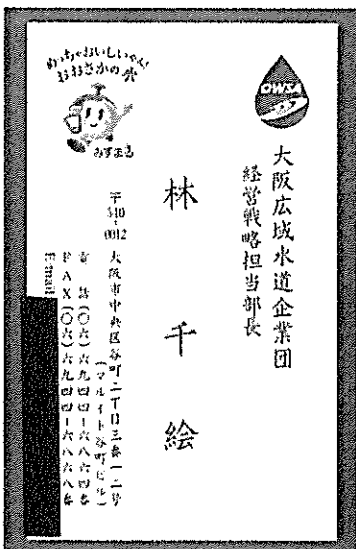 OWSA
大阪広域水道企業団
経営戦略担当部長
林千絵
めっちゃおいしいやん!
おおさかの水
みずまる
〒540-0012 大阪市中央区谷町二丁目三番一二号
(マルイト谷町ビル)
電話(〇六)六九四四-六八六四番
FAX(〇六)六九四四-六八六八番
E-mail